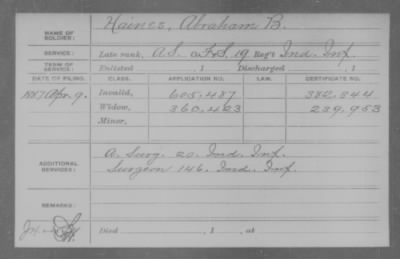 NAME OF SOLDIER: Haines, Abraham B.
SERVICE: Late rank, A.S. of F&S, 19 Reg't Ind. Inf.
TERM OF SERVICE: Enlisted , 1 Discharged , 1
DATE OF FILING. CLASS. APPLICATION NO. LAW. CERTIFICATE NO.
1887 Apr. 9. Invalid, 605,487 382,844
Widow, 360,423 239,953
Minor,
ADDITIONAL SERVICES: A. Surg. 20. Ind. Inf.
Surgeon 146. Ind. Inf.
REMARKS:
Died , 1 , at